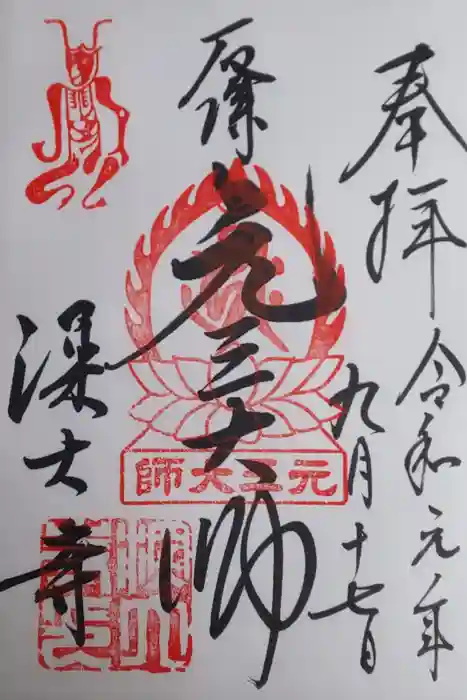 奉拝
令和元年
九月十七日
元三大師
師大三元
深大寺